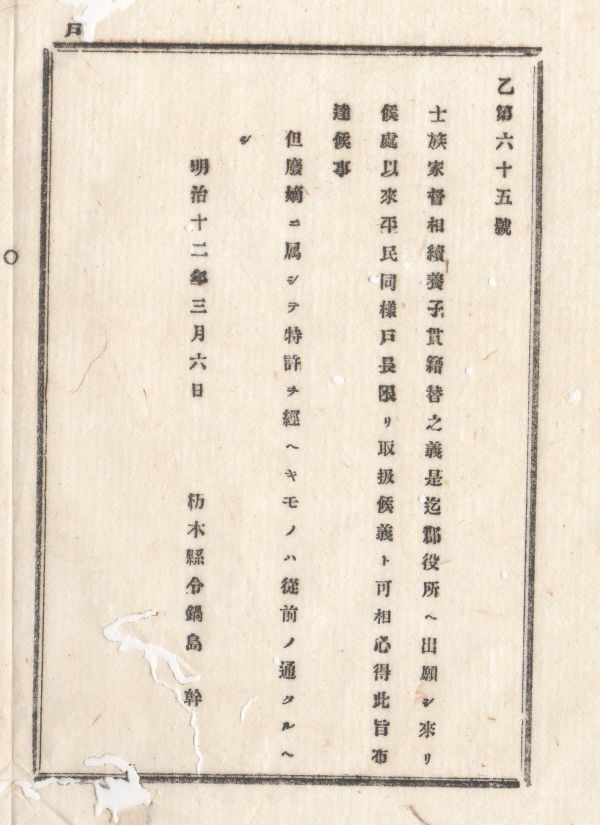 戸
乙第六十五號
士族家督相續養子貫籍替之義是迄郡役所ヘ出願シ來リ
候處以來平民同樣戸長限リ取扱候義ト可相心得此旨布
達候事
但廢嫡ニ属シテ特許ヲ經ヘキモノハ從前ノ通タルヘ
シ
明治十二年三月六日
栃木縣令鍋島 幹